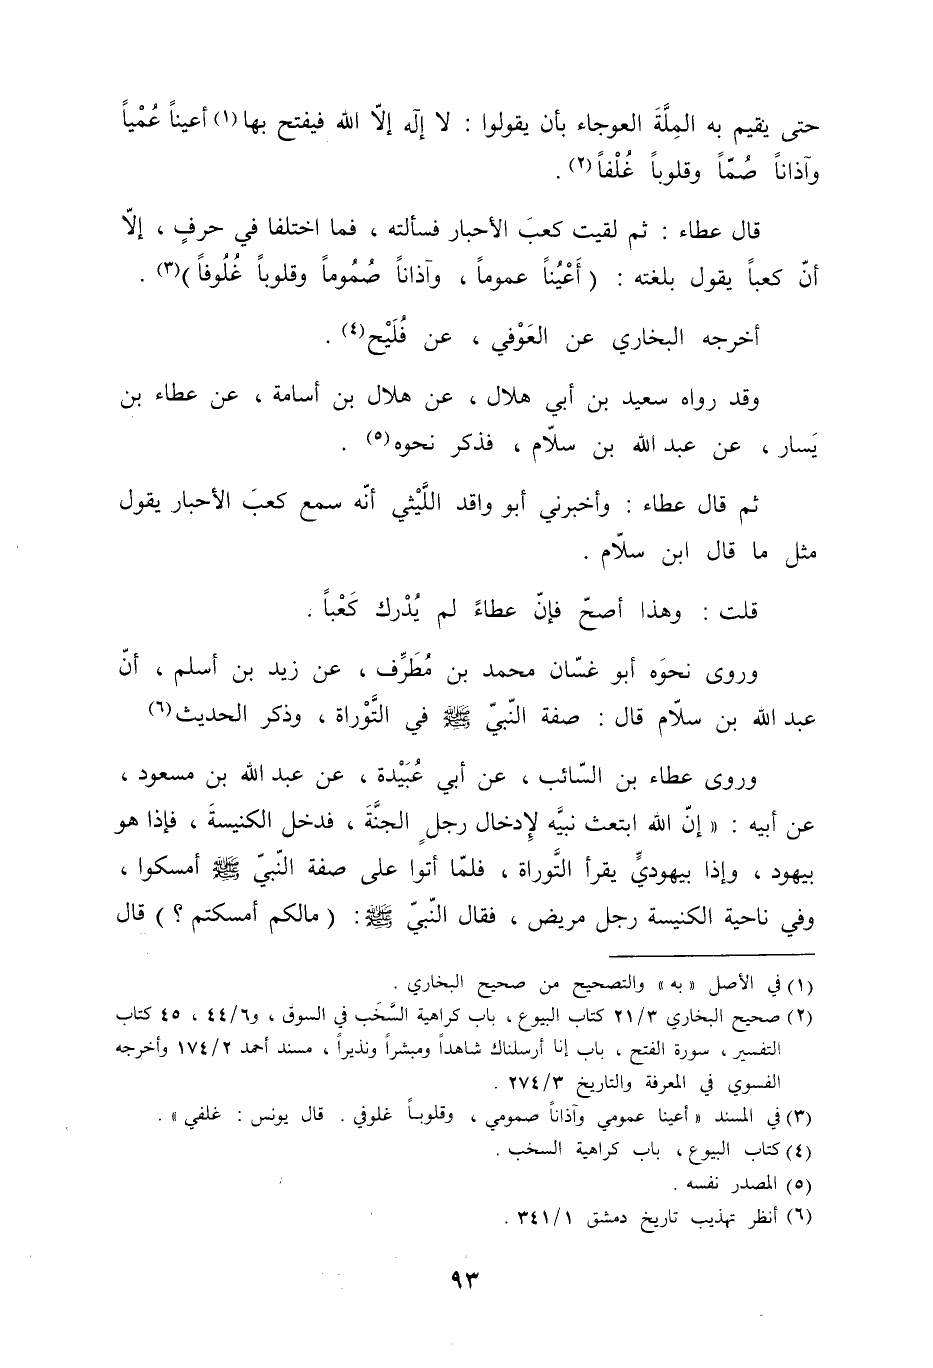 حتى يقيم به المِلَّةَ العوجاء بأن يقولوا : لا إله إلّا الله فيفتح بها(١) أعيناً عُمْياً
وآذاناً صُمّاً وقلوباً غُلْفاً(٢) .
قال عطاء : ثم لقيت كعبَ الأحبار فسألته ، فما اختلفا في حرفٍ ، إلّا
أنّ كعباً يقول بلغته : ( أَعْيُناً عموماً ، وآذاناً صُمُوماً وقلوباً غُلُوفاً )(٣) .
أخرجه البخاري عن العَوْفي ، عن فُلَيْح(٤) .
وقد رواه سعيد بن أبي هلال ، عن هلال بن أسامة ، عن عطاء بن
يَسار ، عن عبد الله بن سلّام ، فذكر نحوه(٥) .
ثم قال عطاء : وأخبرني أبو واقد اللَّيْثي أنّه سمع كعبَ الأحبار يقول
مثل ما قال ابن سلّام .
قلت : وهذا أصحّ فإنّ عطاءً لم يُدْرك كَعْباً .
وروى نحوَه أبو غسّان محمد بن مُطَرِّف ، عن زيد بن أسلم ، أنّ
عبد الله بن سلّام قال : صفة النّبيّ ﷺ في التَّوْراة ، وذكر الحديث(٦)
وروى عطاء بن السّائب ، عن أبي عُبَيْدة ، عن عبد الله بن مسعود ،
عن أبيه : « إنّ الله ابتعث نبيَّه لإدخال رجلٍ الجنَّةَ ، فدخل الكنيسةَ ، فإذا هو
بيهود ، وإذا بيهوديٍّ يقرأ التَّوراة ، فلمّا أتوا على صفة النّبيّ ﷺ أمسكوا ،
وفي ناحية الكنيسة رجل مريض ، فقال النّبيّ ﷺ : ( مالكم أمسكتم ؟ ) قال
(١) في الأصل « به » والتصحيح من صحيح البخاري .
(٢) صحيح البخاري ٢١/٣ كتاب البيوع ، باب كراهية السَّخَب في السوق ، و٤٤/٦ ، ٤٥ كتاب
التفسير ، سورة الفتح ، باب إنا أرسلناك شاهداً ومبشراً ونذيراً ، مسند أحمد ١٧٤/٢ وأخرجه
الفسوي في المعرفة والتاريخ ٢٧٤/٣ .
(٣) في المسند « أعينا عمومي وآذاناً صمومي ، وقلوبـاً غلوفي . قال يونس : غلفي » .
(٤) كتاب البيوع ، باب كراهية السخب .
(٥) المصدر نفسه .
(٦) أنظر تهذيب تاريخ دمشق ٣٤١/١ .
٩٣